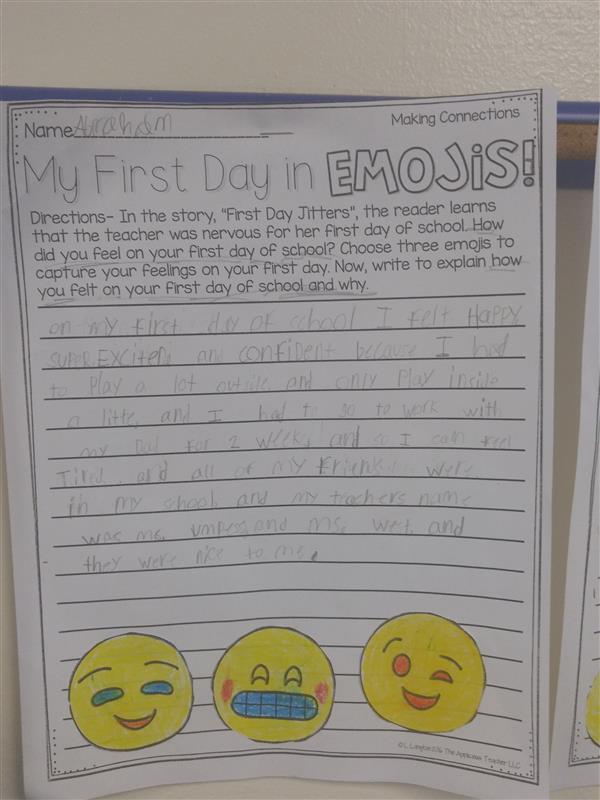 Name Abraham
Making Connections
My First Day in EMOJiS!
Directions- In the story, "First Day Jitters", the reader learns
that the teacher was nervous for her first day of school. How
did you feel on your first day of school? Choose three emojis to
capture your feelings on your first day. Now, write to explain how
you felt on your first day of school and why.
on my first day of school I felt HAPPY
SUPER EXCITED and confident because I had
to Play a lot outside and only Play inside
a little, and I had to go to work with
my Dad for 2 weeks and so I can feel
Tired. and all of my Friends were
in my shool, and my teachers name
was ms. and ms. west, and
they were nice to me.
© L. Langton2016 The Applicious Teacher LLC